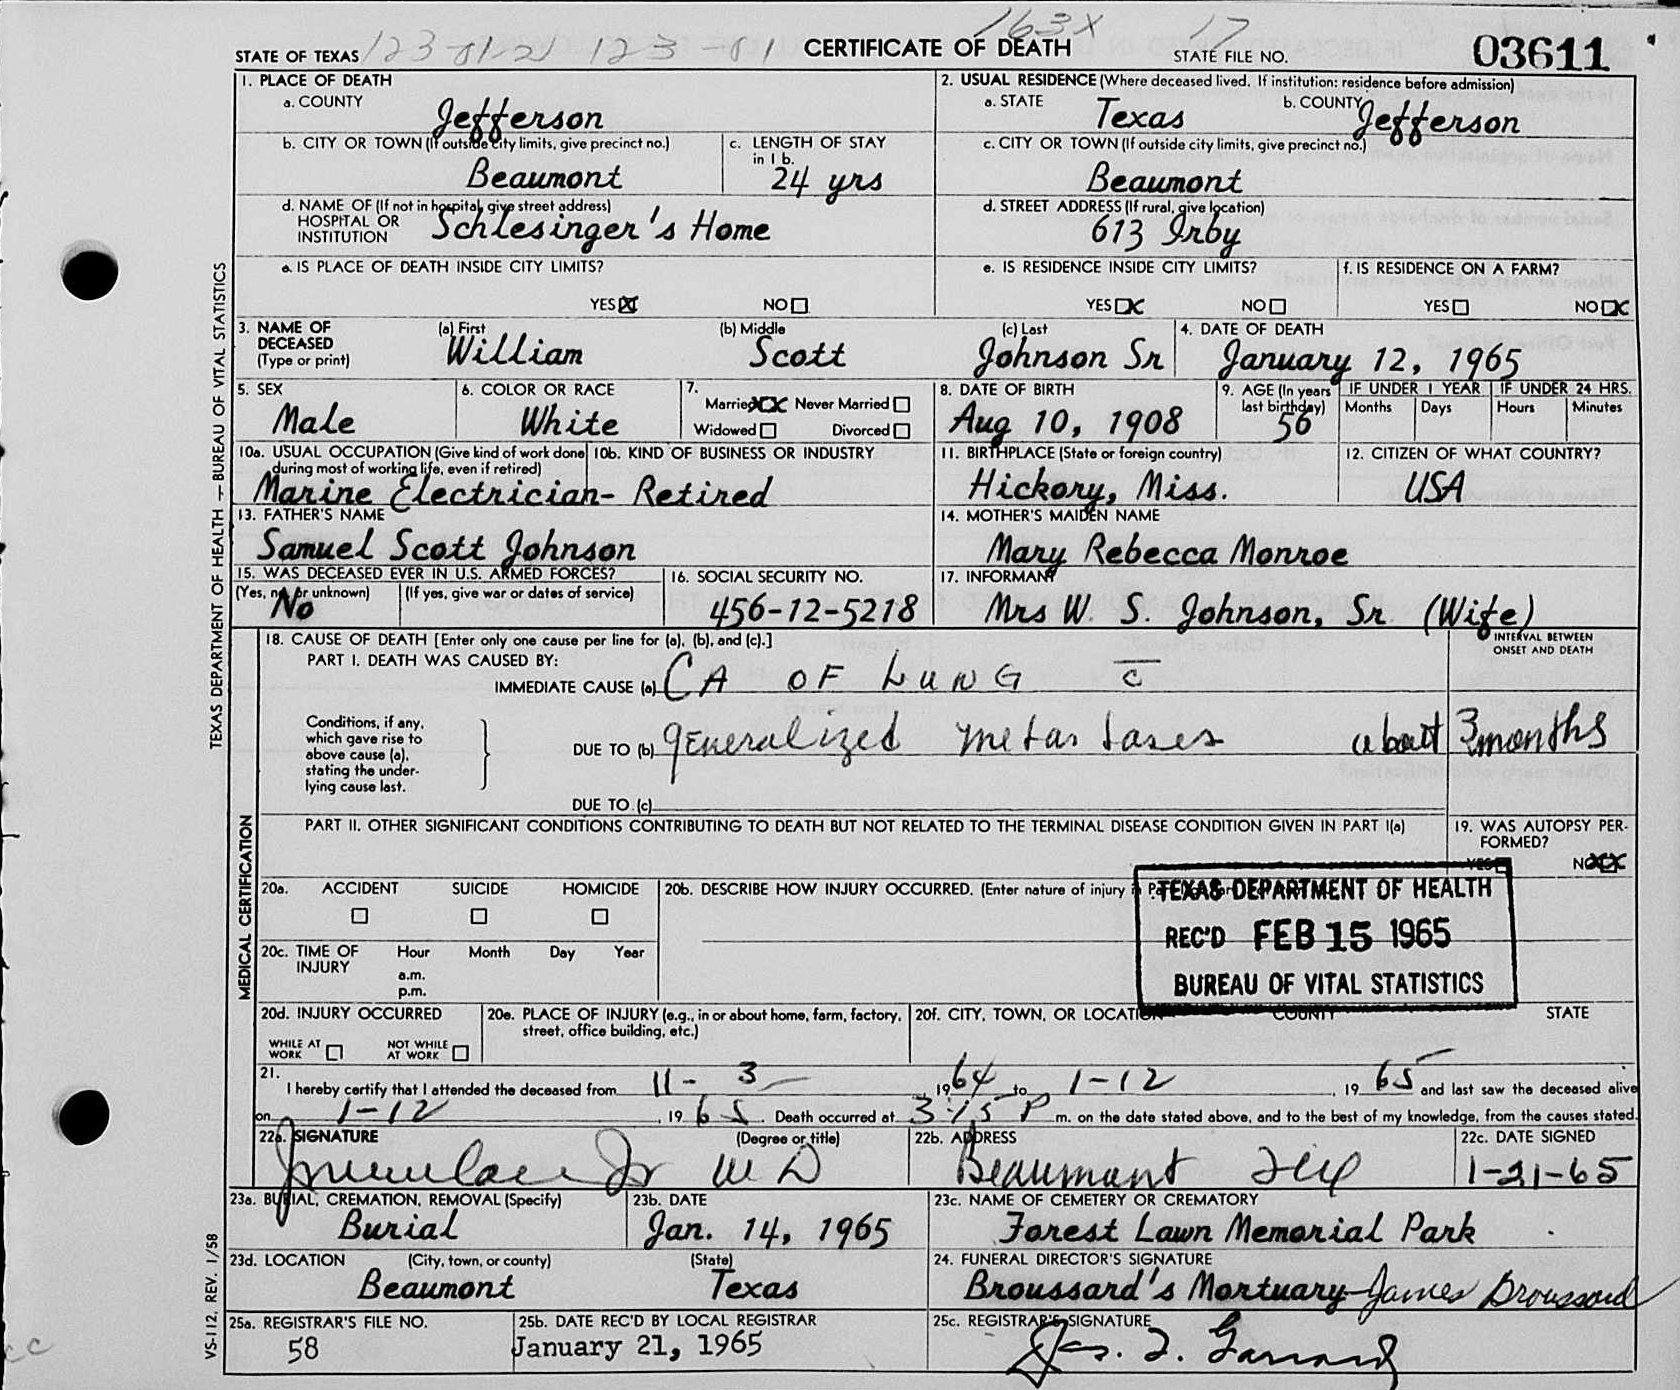 163X 17
STATE OF TEXAS 123-01-21 123-01 CERTIFICATE OF DEATH STATE FILE NO. 03611
1. PLACE OF DEATH
a. COUNTY Jefferson
2. USUAL RESIDENCE (Where deceased lived. If institution: residence before admission)
a. STATE Texas b. COUNTY Jefferson
b. CITY OR TOWN (If outside city limits, give precinct no.) Beaumont
c. LENGTH OF STAY in 1 b. 24 yrs
c. CITY OR TOWN (If outside city limits, give precinct no.) Beaumont
d. NAME OF (If not in hospital, give street address) HOSPITAL OR INSTITUTION Schlesinger's Home
d. STREET ADDRESS (If rural, give location) 613 Irby
e. IS PLACE OF DEATH INSIDE CITY LIMITS?
YES X NO
e. IS RESIDENCE INSIDE CITY LIMITS?
YES X NO
f. IS RESIDENCE ON A FARM?
YES NO X
3. NAME OF DECEASED (Type or print)
(a) First William (b) Middle Scott (c) Last Johnson Sr
4. DATE OF DEATH January 12, 1965
5. SEX Male
6. COLOR OR RACE White
7. Married XX Never Married
Widowed Divorced
8. DATE OF BIRTH Aug 10, 1908
9. AGE (In years last birthday) 56
IF UNDER 1 YEAR Months Days
IF UNDER 24 HRS. Hours Minutes
10a. USUAL OCCUPATION (Give kind of work done during most of working life, even if retired)
10b. KIND OF BUSINESS OR INDUSTRY
Marine Electrician- Retired
11. BIRTHPLACE (State or foreign country) Hickory, Miss.
12. CITIZEN OF WHAT COUNTRY? USA
13. FATHER'S NAME Samuel Scott Johnson
14. MOTHER'S MAIDEN NAME Mary Rebecca Monroe
15. WAS DECEASED EVER IN U.S. ARMED FORCES?
(Yes, no, or unknown) No (If yes, give war or dates of service)
16. SOCIAL SECURITY NO. 456-12-5218
17. INFORMANT Mrs W. S. Johnson, Sr (Wife)
18. CAUSE OF DEATH [Enter only one cause per line for (a), (b), and (c).]
INTERVAL BETWEEN ONSET AND DEATH
PART I. DEATH WAS CAUSED BY:
IMMEDIATE CAUSE (a) CA OF LUNG c̄
Conditions, if any, which gave rise to above cause (a), stating the underlying cause last.
DUE TO (b) generalized metastases about 3 months
DUE TO (c)
PART II. OTHER SIGNIFICANT CONDITIONS CONTRIBUTING TO DEATH BUT NOT RELATED TO THE TERMINAL DISEASE CONDITION GIVEN IN PART I(a)
19. WAS AUTOPSY PERFORMED?
YES NO XX
20a. ACCIDENT SUICIDE HOMICIDE
20b. DESCRIBE HOW INJURY OCCURRED. (Enter nature of injury in
TEXAS DEPARTMENT OF HEALTH
REC'D FEB 15 1965
BUREAU OF VITAL STATISTICS
20c. TIME OF INJURY Hour Month Day Year
a.m.
p.m.
20d. INJURY OCCURRED
WHILE AT WORK NOT WHILE AT WORK
20e. PLACE OF INJURY (e.g., in or about home, farm, factory, street, office building, etc.)
20f. CITY, TOWN, OR LOCATION COUNTY STATE
21. I hereby certify that I attended the deceased from 11-3 1964 to 1-12, 1965 and last saw the deceased alive
on 1-12, 1965. Death occurred at 3:15 P m. on the date stated above, and to the best of my knowledge, from the causes stated.
22a. SIGNATURE (Degree or title) Jr MD
22b. ADDRESS Beaumont Tex
22c. DATE SIGNED 1-21-65
23a. BURIAL, CREMATION, REMOVAL (Specify) Burial
23b. DATE Jan. 14, 1965
23c. NAME OF CEMETERY OR CREMATORY Forest Lawn Memorial Park
23d. LOCATION (City, town, or county) Beaumont (State) Texas
24. FUNERAL DIRECTOR'S SIGNATURE Broussard's Mortuary-James Broussard
25a. REGISTRAR'S FILE NO. 58
25b. DATE REC'D BY LOCAL REGISTRAR January 21, 1965
25c. REGISTRAR'S SIGNATURE
TEXAS DEPARTMENT OF HEALTH — BUREAU OF VITAL STATISTICS
MEDICAL CERTIFICATION
VS-112, REV. 1/58